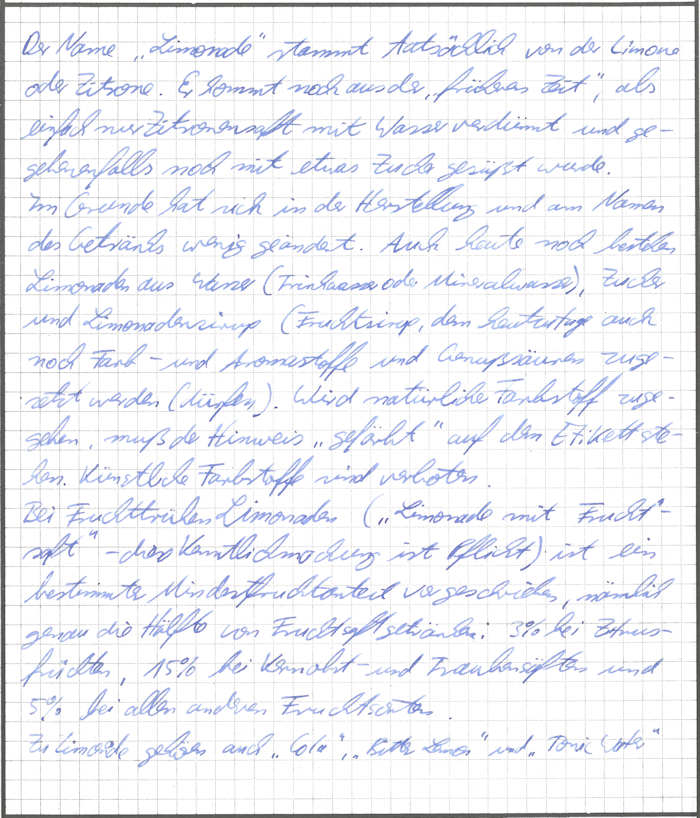 Der Name „Limonade" stammt tatsächlich von der Limone
oder Zitrone. Er kommt noch aus der „früheren Zeit", als
einfach nur Zitronensaft mit Wasser verdünnt und ge-
gebenenfalls noch mit etwas Zucker gesüßt wurde.
Im Grunde hat sich in der Herstellung und am Namen
des Getränks wenig geändert. Auch heute noch bestehen
Limonaden aus Wasser (Trinkwasser oder Mineralwasser), Zucker
und Limonadensirup (Fruchtsirup, dem heutzutage auch
noch Farb- und Aromastoffe und Genußsäuren zuge-
setzt werden (dürfen). Wird natürliche Farbstoff zuge-
geben, muß der Hinweis „gefärbt" auf dem Etikett ste-
hen. Künstliche Farbstoffe sind verboten.
Bei Fruchttrüben Limonaden („Limonade mit Frucht"-
saft" - diese Kenntlichmachung ist Pflicht) ist ein
bestimmter Mindestfruchtanteil vorgeschrieben, nämlich
genau die Hälfte von Fruchtsaftgetränken: 3% bei Zitrus-
früchten, 15% bei Kernobst- und Traubensäften und
5% bei allen anderen Fruchtsorten.
Zu Limonade gehören auch „Cola", „Bitter Lemon" und „Tonic Water"